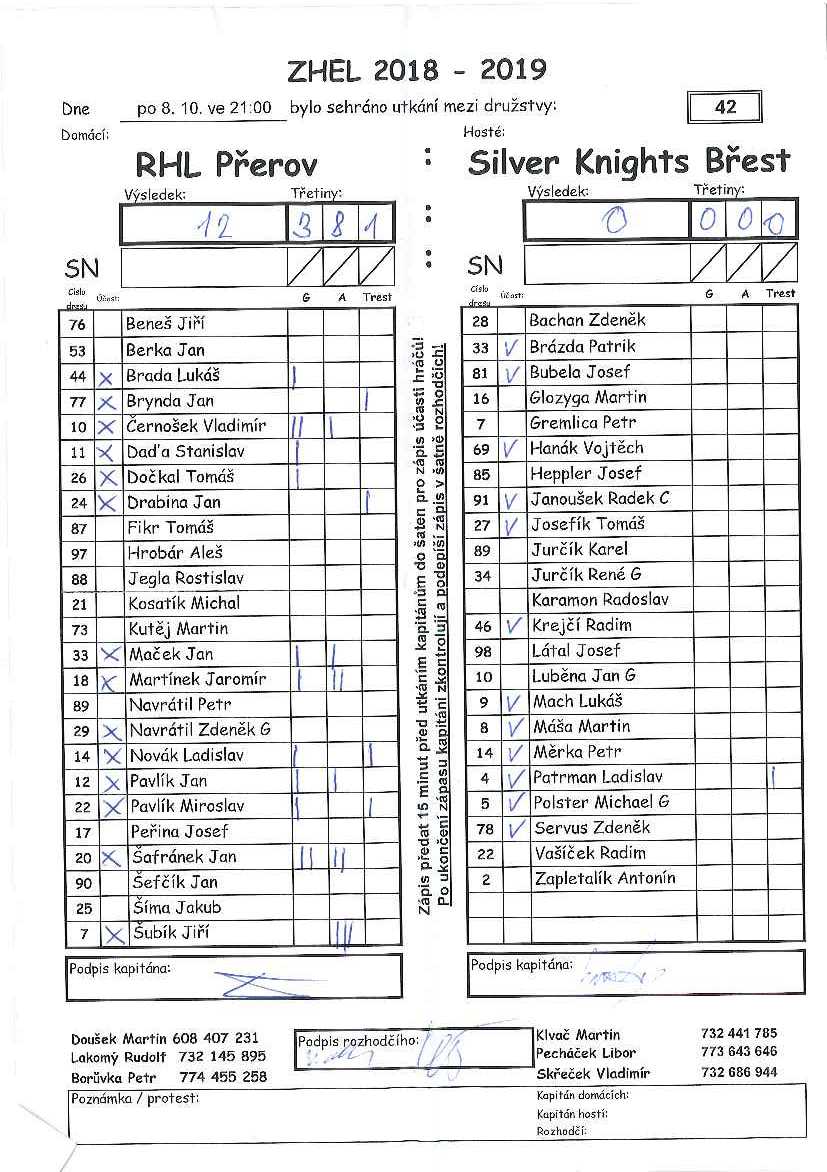 ZHEL 2018 - 2019
Dne po 8. 10. ve 21:00 bylo sehráno utkání mezi družstvy: 42
Domácí: Hosté:
RHL Přerov : Silver Knights Břest
Výsledek: Třetiny: Výsledek: Třetiny:
12 3 8 1 : 0 0 0 0
SN : SN
Číslo dresu Účast: G A Trest Číslo dresu Účast: G A Trest
76 Beneš Jiří
53 Berka Jan
44 X Brada Lukáš |
77 X Brynda Jan |
10 X Černošek Vladimír || |
11 X Daďa Stanislav |
26 X Dočkal Tomáš |
24 X Drabina Jan |
87 Fikr Tomáš
97 Hrobár Aleš
88 Jegla Rostislav
21 Kosatík Michal
73 Kutěj Martin
33 X Maček Jan | |
18 X Martínek Jaromír | ||
89 Navrátil Petr
29 X Navrátil Zdeněk G
14 X Novák Ladislav | |
12 X Pavlík Jan | |
22 X Pavlík Miroslav | |
17 Peřina Josef
20 X Šafránek Jan || ||
90 Šefčík Jan
25 Šíma Jakub
7 X Šubík Jiří |||
Zápis předat 15 minut před utkáním kapitánům do šaten pro zápis účasti hráčů!
Po ukončení zápasu kapitáni zkontrolují a podepíší zápis v šatně rozhodčích!
28 Bachan Zdeněk
33 V Brázda Patrik
81 V Bubela Josef
16 Glozyga Martin
7 Gremlica Petr
69 V Hanák Vojtěch
85 Heppler Josef
91 V Janoušek Radek C
27 V Josefík Tomáš
89 Jurčík Karel
34 Jurčík René G
Karamon Radoslav
46 V Krejčí Radim
98 Látal Josef
10 Luběna Jan G
9 V Mach Lukáš
8 V Máša Martin
14 V Měrka Petr
4 V Patrman Ladislav |
5 V Polster Michael G
78 V Servus Zdeněk
22 Vašíček Radim
2 Zapletalík Antonín
Podpis kapitána: Podpis kapitána:
Doušek Martin 608 407 231 Podpis rozhodčího: Klvač Martin 732 441 785
Lakomý Rudolf 732 145 895 Pecháček Libor 773 643 646
Borůvka Petr 774 455 258 Skřeček Vladimír 732 686 944
Poznámka / protest: Kapitán domácích:
Kapitán hostí:
Rozhodčí: